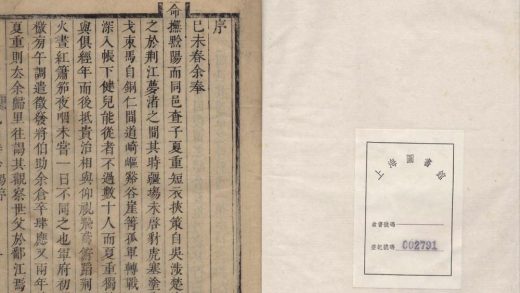 序
己未春余奉
命撫黔陽而同邑查子夏重短衣挾策自吳淩楚
之於荊江夢渚之間其時疆場未啓豺虎塞塗
戈束馬自銅仁間道崎嶇谿谷崖箐孤軍轉戰
深入帳下健兒能從者不過數十人而夏重獨
與俱經年而後抵貴治相與仰視飛鳶俯蹈荊
火晝紅簫笳夜咽未嘗一日不同之也軍府初
檄旁午調遣徵發將伯助余倉卒肆應又兩年
夏重則去余歸里往謁其觀察世父於鄱江焉
上海圖書館
索書號碼
登記號碼 002791